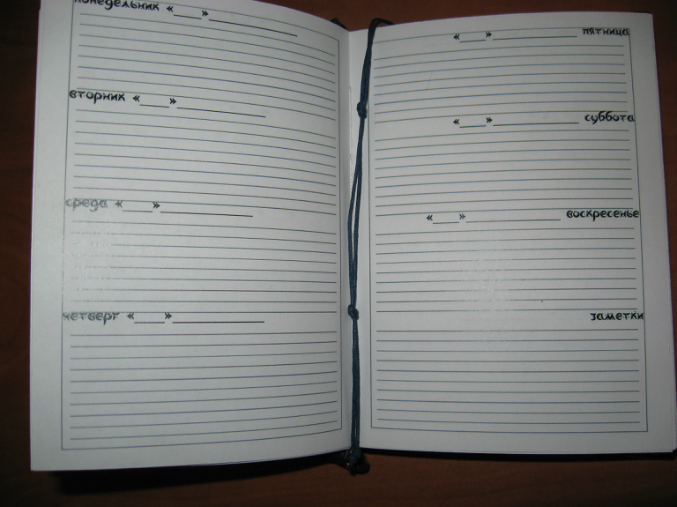 понедельник «___»____________
вторник «___»____________
среда «___»____________
четверг «___»____________
«___»____________ пятница
«___»____________ суббота
«___»____________ воскресенье
заметки